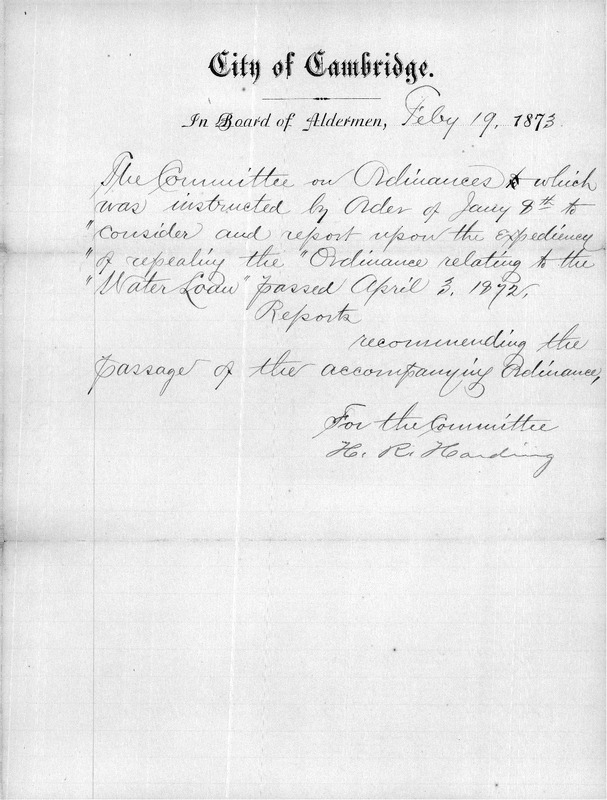 City of Cambridge.
In Board of Aldermen, Feby 19, 1873
The Committee on Ordinances which
was instructed by Order of Jany 8th to
"consider and report upon the expediency
"of repealing the "Ordinance relating to the
"Water Loan" passed April 3, 1872,
Reports
recommending the
passage of the accompanying Ordinance,
For the Committee
H. R. Harding